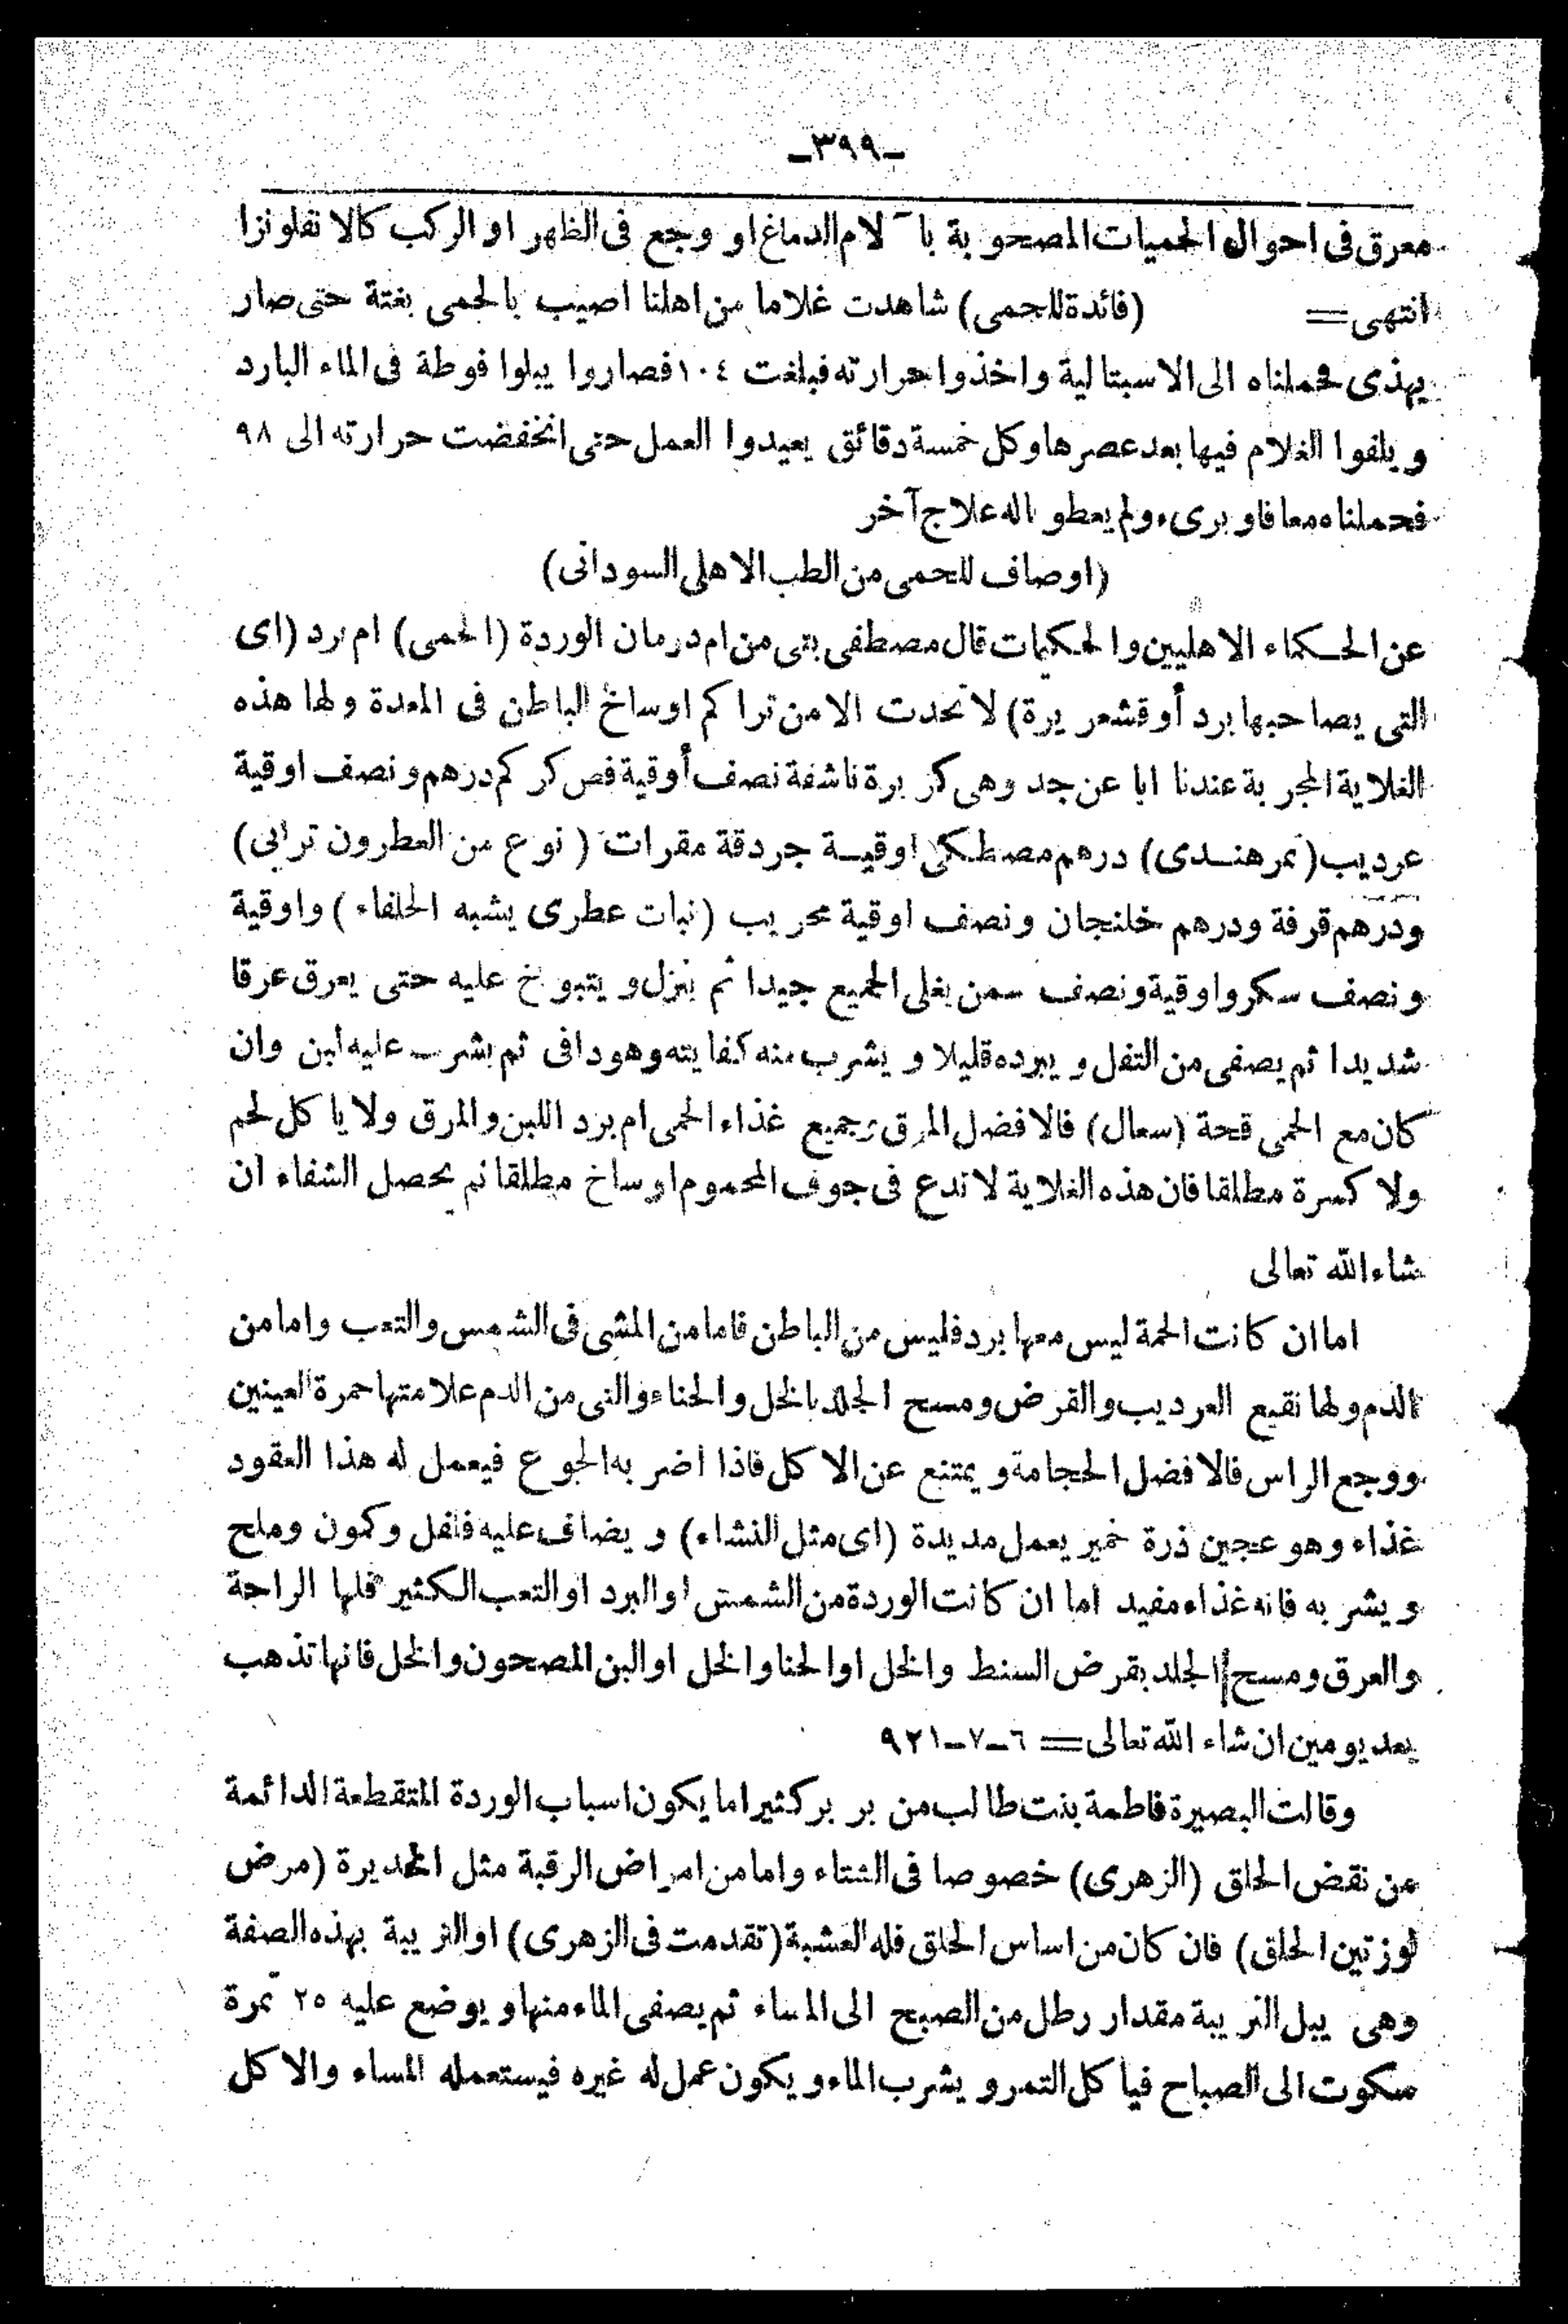 -٣٩٩-
معرق فى احوال الحميات المصحوبة بآلام الدماغ او وجع فى الظهر او الركب كالانفلونزا
انتهى = (فائدة للحمى) شاهدت غلاما من اهلنا اصيب بالحمى بغتة حتى صار
يهذى فحملناه الى الاسبتالية واخذوا حرارته فبلغت ١٠٤ فصاروا يبلوا فوطة فى الماء البارد
ويلفوا الغلام فيها بعد عصرها وكل خمسة دقائق يعيدوا العمل حتى انخفضت حرارته الى ٩٨
فحملناه معافا وبرىء ولم يعطو اله علاج آخر
(اوصاف للحمى من الطب الاهلى السودانى)
عن الحكماء الاهليين والحكيمات قال مصطفى بتى من ام درمان الوردة (الحمى) ام برد (اى
التى يصاحبها برد أو قشعريرة) لا تحدث الا من تراكم اوساخ الباطن فى المعدة ولها هذه
الغلاية المجربة عندنا ابا عن جد وهى كزبرة ناشفة نصف أوقية فص كركم درهم ونصف اوقية
عرديب (تمر هندى) درهم مصطكى اوقية جردقة مقرات (نوع من العطرون ترابى)
ودرهم قرفة ودرهم خلنجان ونصف اوقية محريب (نبات عطرى يشبه الحلفاء) واوقية
ونصف سكر واوقية ونصف سمن يغلى الجميع جيدا ثم ينزل ويتبوخ عليه حتى يعرق عرقا
شديدا ثم يصفى من التفل ويبرده قليلا ويشرب منه كفايته وهو دافى ثم يشرب عليه لبن وان
كان مع الحمى قحة (سعال) فالافضل المرق وجميع غذاء الحمى ام برد اللبن والمرق ولا يا كل لحم
ولا كسرة مطلقا فان هذه الغلاية لا تدع فى جوف المحموم اوساخ مطلقا ثم يحصل الشفاء ان
شاء الله تعالى
اما ان كانت الحمة ليس معها برد فليس من الباطن فاما من المشى فى الشمس والتعب واما من
الدم ولها نقيع العرديب والقرض ومسح الجلد بالخل والحناء والتى من الدم علامتها حمرة العينين
ووجع الراس فالافضل الحجامة ويمتنع عن الاكل فاذا اضر به الجوع فيعمل له هذا العقود
غذاء وهو عجين ذرة خمير يعمل مديدة (اى مثل النشاء) ويضاف عليه فلفل وكمون وملح
ويشربه فانه غذاء مفيد اما ان كانت الوردة من الشمس او البرد او التعب الكثير فلها الراحة
والعرق ومسح الجلد بقرض السنط والخل او الحنا والخل او البن المصحون والخل فانها تذهب
بعد يومين ان شاء الله تعالى = ٦-٧-٩٢١
وقالت البصيرة فاطمة بنت طالب من بربر كثيرا ما يكون اسباب الوردة المتقطعة الدائمة
من نقض الحلق (الزهرى) خصوصا فى الشتاء واما من امراض الرقبة مثل الخديرة (مرض
لوزتين الحلق) فان كان من اساس الحلق فله العشبة (تقدمت فى الزهرى) او الزيبة بهذه الصفة
وهى يبل الزيبة مقدار رطل من الصبح الى المساء ثم يصفى الماء منها ويوضع عليه ٢٥ تمرة
سكوت الى الصباح فيا كل التمر ويشرب الماء ويكون عمل له غيره فيستعمله المساء والاكل